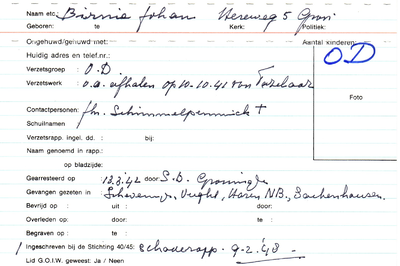 Naam etc. Birnie Johan Hereweg 5 Gron.
Geboren: te Kerk: Politiek:
Ongehuwd/gehuwd met: Aantal kinderen:
OD
Huidig adres en telef.nr.:
Verzetsgroep : O.D.
Verzetswerk : o.a. afhalen op 10-10-41 van
Foto
Contactpersonen: fhr. Schimmelpenninck †
Schuilnamen
Verzetsrapp. ingel. dd. : bij:
Naam genoemd in rapp.:
op bladzijde:
Gearresteerd op : 13.3.42 door: S.D. Groningen
Gevangen gezeten in: Scheveningen, Vught, Haren NB., Sachsenhausen
Bevrijd op : uit : door:
Overleden op: door: te :
Begraven op : te :
Ingeschreven bij de Stichting 40/45: Schaderapp. 9-2-'48
Lid G.O.I.W. geweest: Ja / Neen